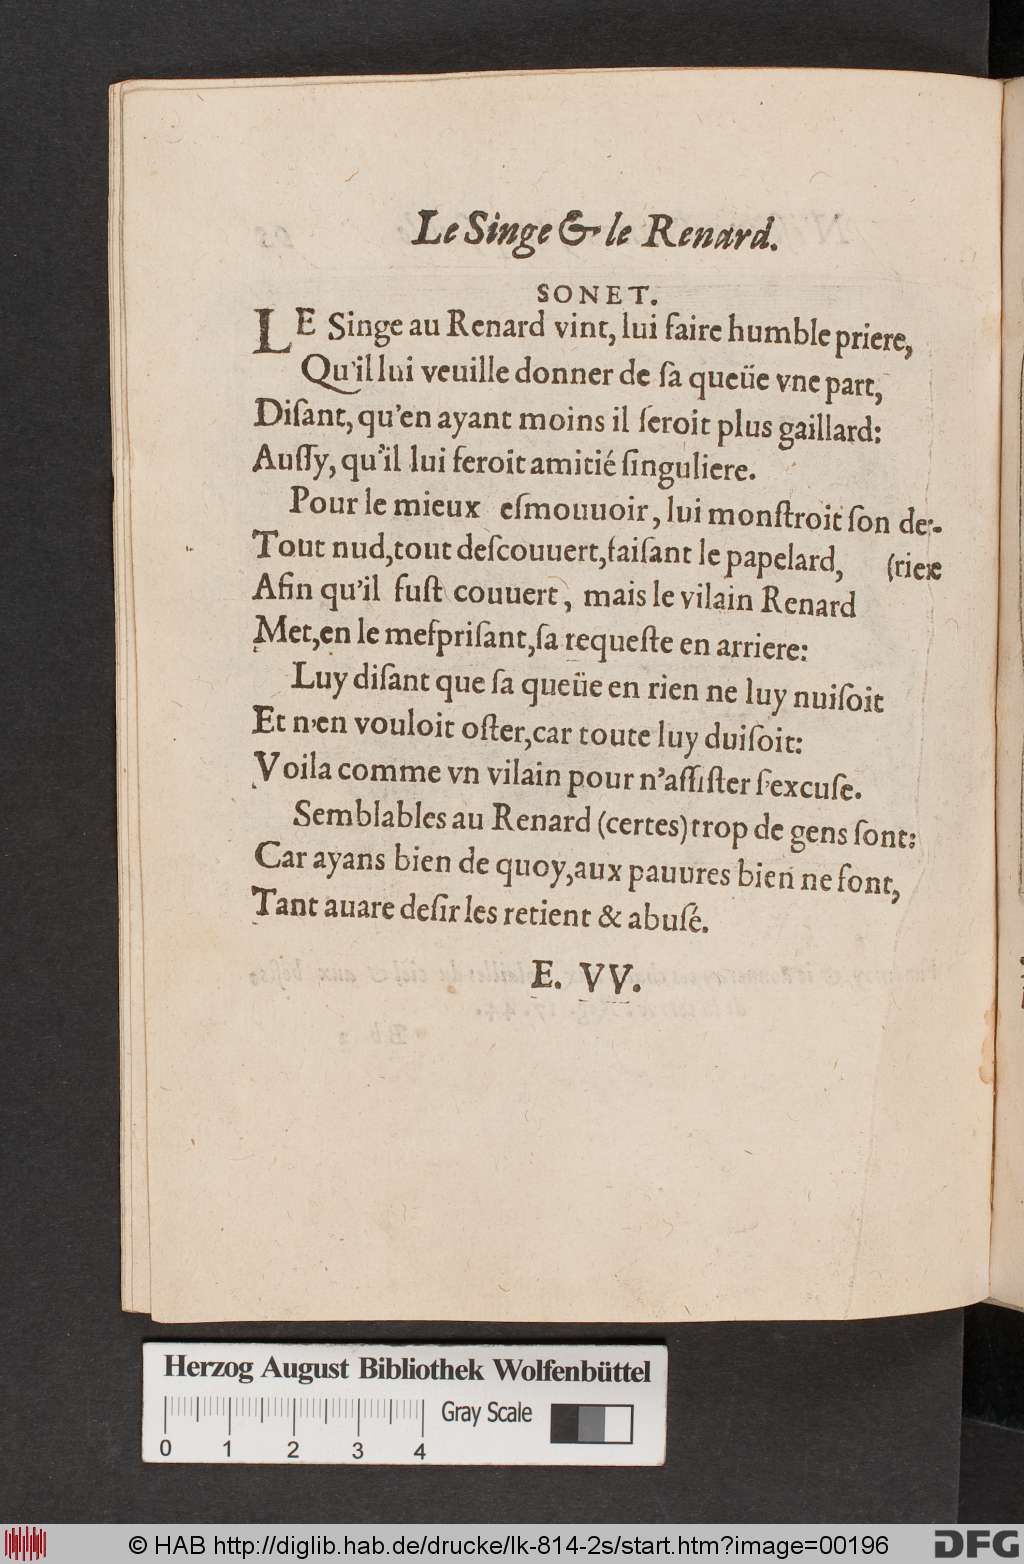 Le Singe & le Renard.
SONET.
LE Singe au Renard vint, lui faire humble priere,
Qu'il lui veuille donner de ſa queüe vne part,
Diſant, qu'en ayant moins il ſeroit plus gaillard:
Auſſy, qu'il lui feroit amitié ſinguliere.
Pour le mieux eſmouuoir, lui monſtroit ſon de-
Tout nud, tout deſcouuert, faiſant le papelard, (riere
Afin qu'il fuſt couuert, mais le vilain Renard
Met, en le meſpriſant, ſa requeſte en arriere:
Luy diſant que ſa queüe en rien ne luy nuiſoit
Et n'en vouloit oſter, car toute luy duiſoit:
Voila comme vn vilain pour n'aſſiſter s'excuſe.
Semblables au Renard (certes) trop de gens ſont:
Car ayans bien de quoy, aux pauures bien ne font,
Tant auare deſir les retient & abuſé.
E. VV.
Herzog August Bibliothek Wolfenbüttel
Gray Scale
0 1 2 3 4
© HAB http://diglib.hab.de/drucke/lk-814-2s/start.htm?image=00196
DFG